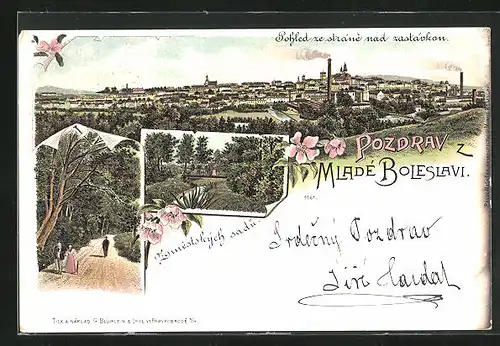 Pohled ze stráně nad zastávkou.
POZDRAV Z
MLADÉ BOLESLAVI.
Z městských sadů
Srdečný Pozdrav
Jiří
TISK A NÁKLAD G. BLÜMLEIN &